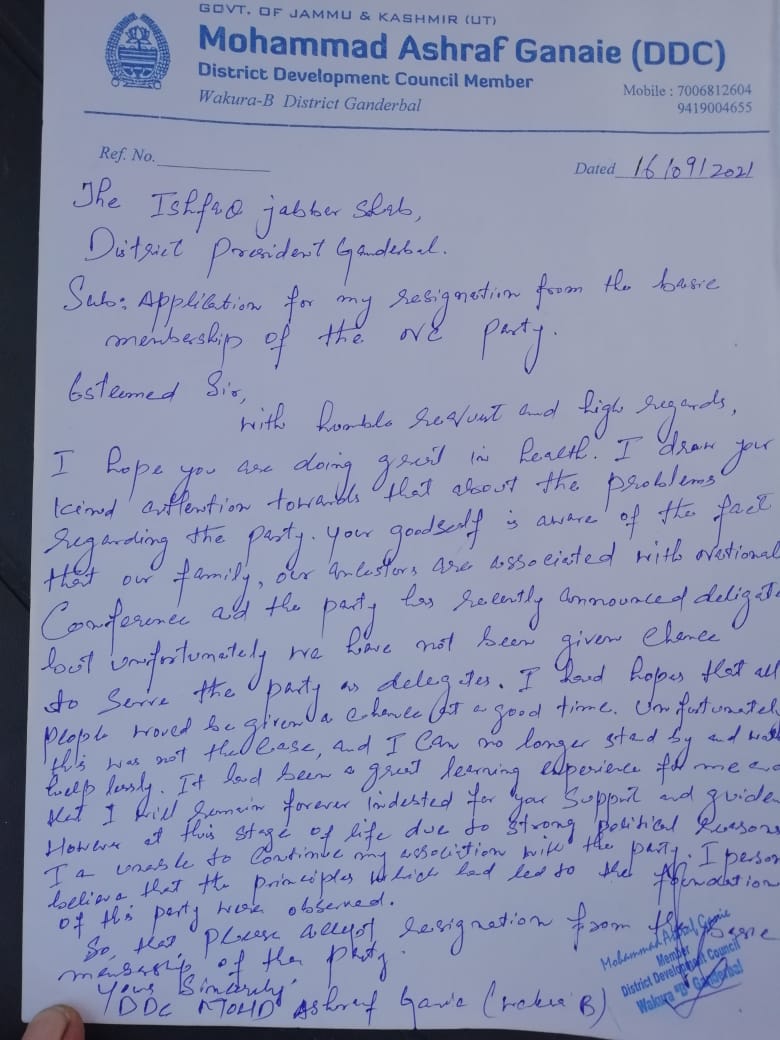 GOVT. OF JAMMU & KASHMIR (UT)
Mohammad Ashraf Ganaie (DDC)
District Development Council Member
Wakura-B District Ganderbal
Mobile : 7006812604
9419004655
Ref. No.
Dated 16/09/2021
The Ishfaq jabber Shab,
District President Ganderbal.
Sub: Application for my resignation from the basic
membership of the N/C Party.
Esteemed Sir,
with humble and high regards,
I hope you are doing great in health. I draw your
kind attention towards that about the problems
regarding the party. Your goodself is aware of the fact
that our family, our ancestors are associated with National
Conference and the party has recently announced
but unfortunately we have not been given chance
to serve the party as delegates. I had hopes that all
people be given a chance at a good time. Unfortunately
this was not the case, and I can no longer stand by and
help lessly. It had been a great learning experience for me
that I will remain forever for your support and
at this stage of life due to strong political reasons
I unable to continue my association with the party. I
believe that the principles which had led to the foundation
of this party were observed.
So, that please resignation from the basic
membership of the party.
Yours Sincerely
DDC MOHD Ashraf Ganie
Mohammad Ashraf Ganie
Member
District Development Council
Wakura "B" Ganderbal